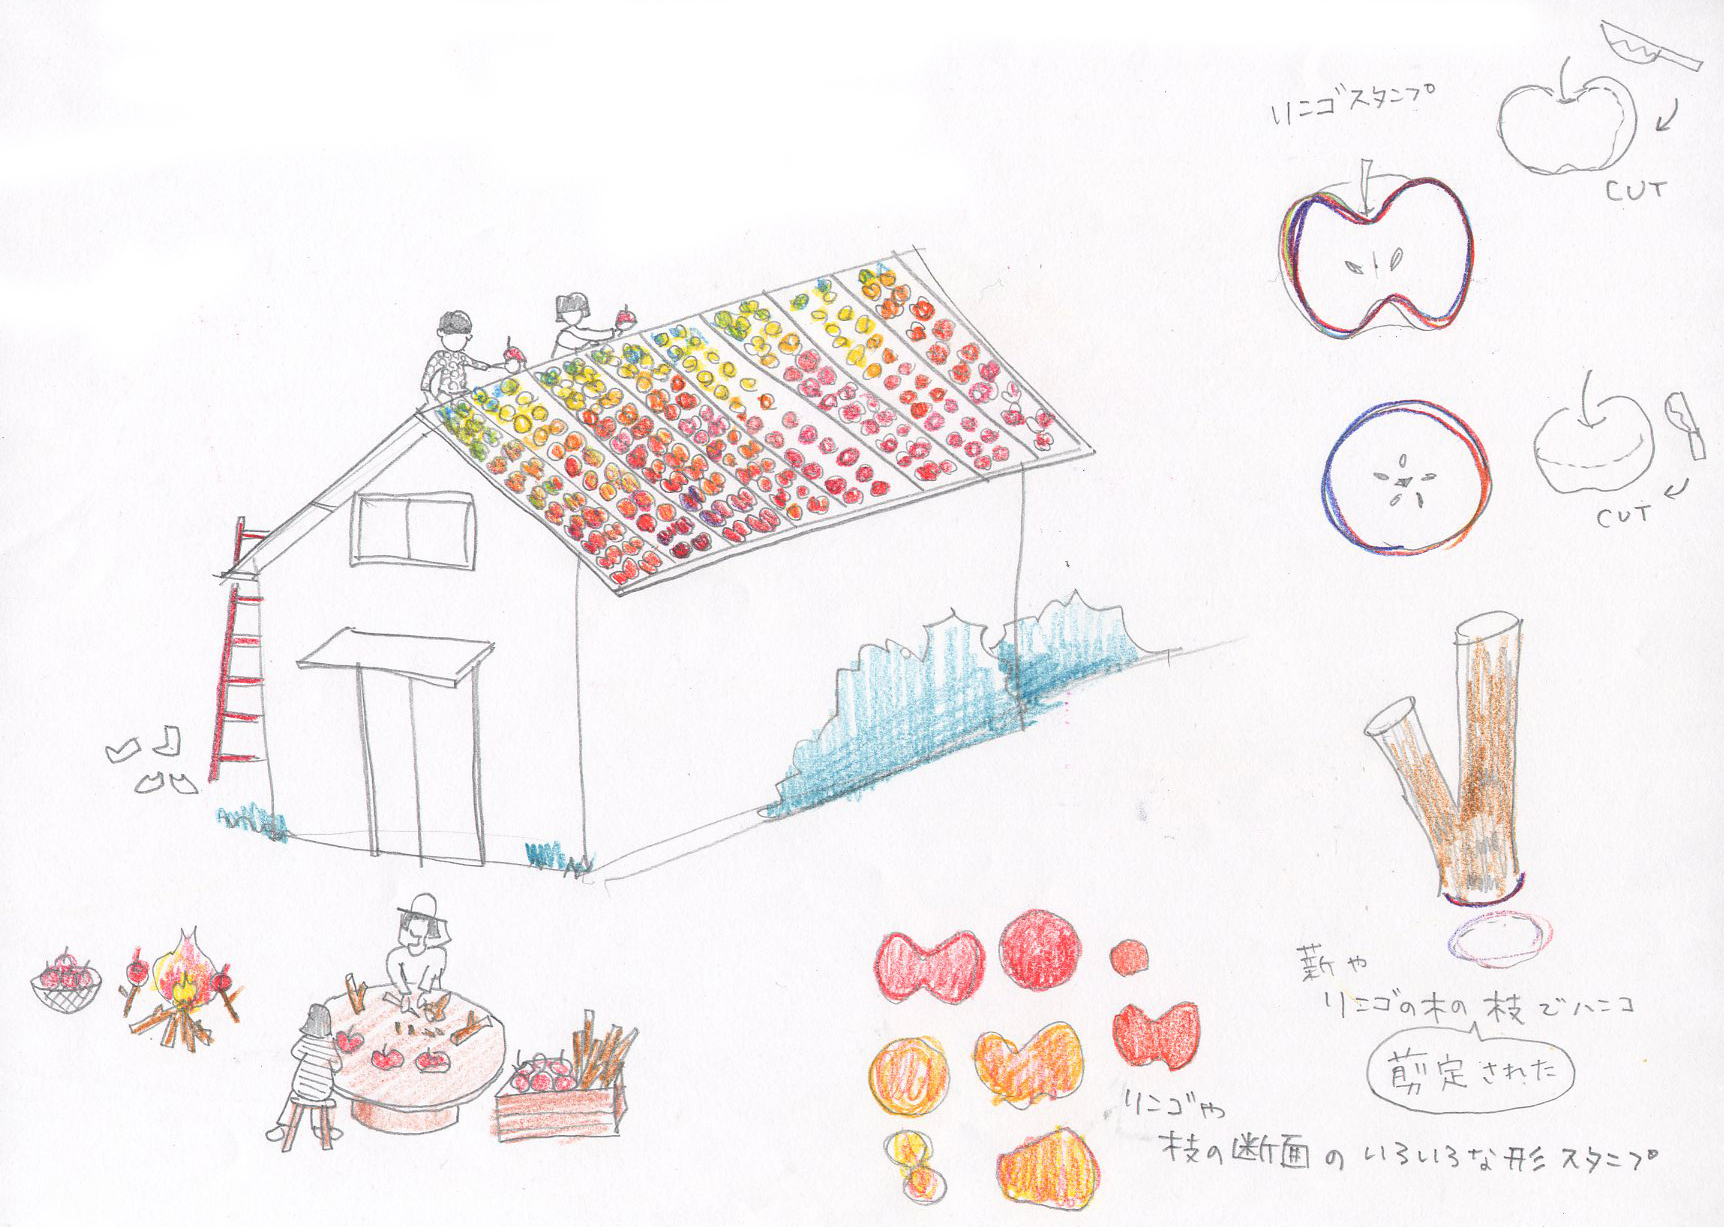 リンゴスタンプ
CUT
CUT
薪や
リンゴの木の枝でハンコ
剪定された
リンゴや
枝の断面のいろいろな形スタンプ